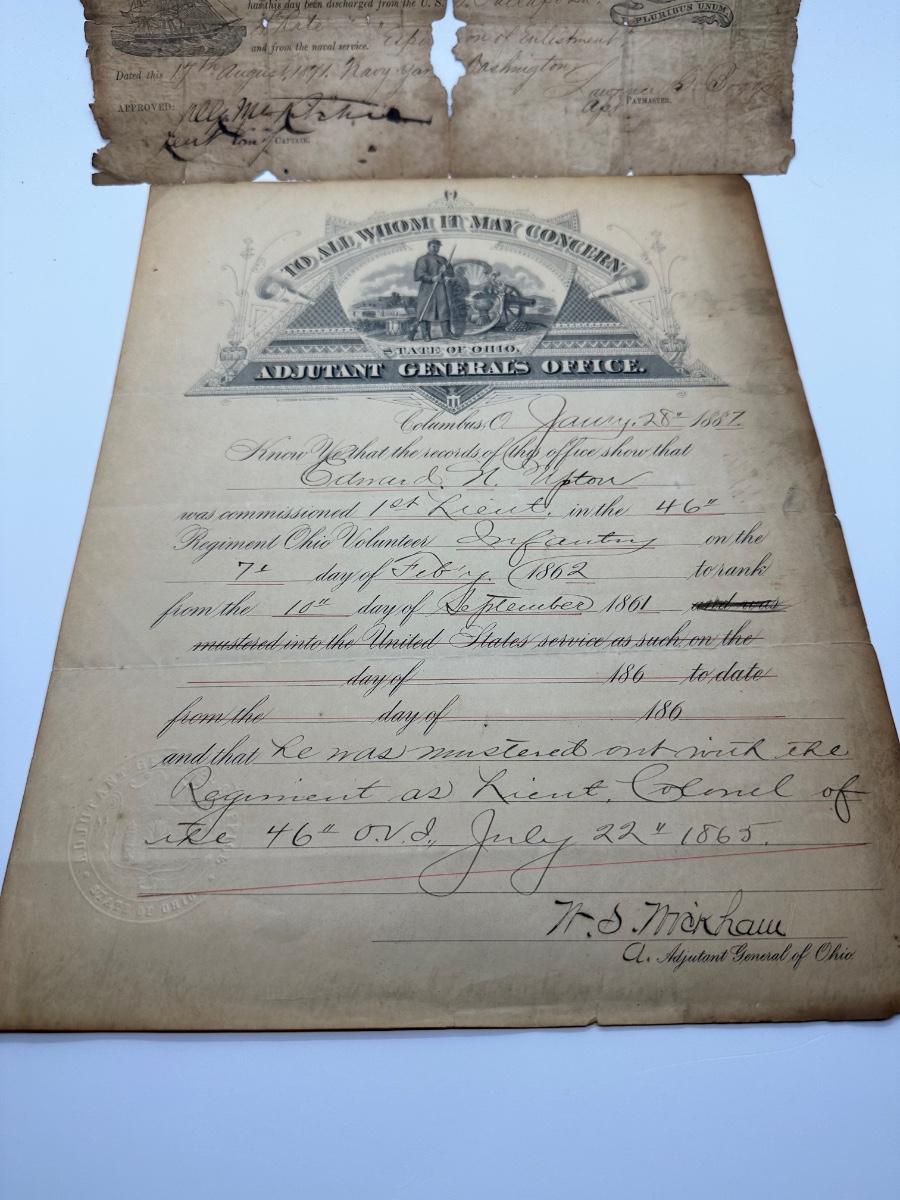 has this day been discharged from the U. S.
and from the naval service. of Enlistment
PLURIBUS UNUM
Dated this 17th August, 1871. Navy Yard Washington
PAYMASTER.
APPROVED:
CAPTAIN.
TO ALL WHOM IT MAY CONCERN
STATE OF OHIO.
ADJUTANT GENERAL'S OFFICE.
Columbus, O. Jan'ry. 28" 1887.
Know Ye that the records of this office show that
Edward N. Upton
was commissioned 1st Lieut. in the 46"
Regiment Ohio Volunteer Infantry on the
7" day of Feb'y. 1862 to rank
from the 10" day of September 1861 and was
mustered into the United States service as such on the
day of 186 to date
from the day of 186
and that he was mustered out with the
Regiment as Lieut. Colonel of
the 46" O.V.I., July 22" 1865.
ADJUTANT
STATE OF OHIO
W. S. Wickham
A. Adjutant General of Ohio